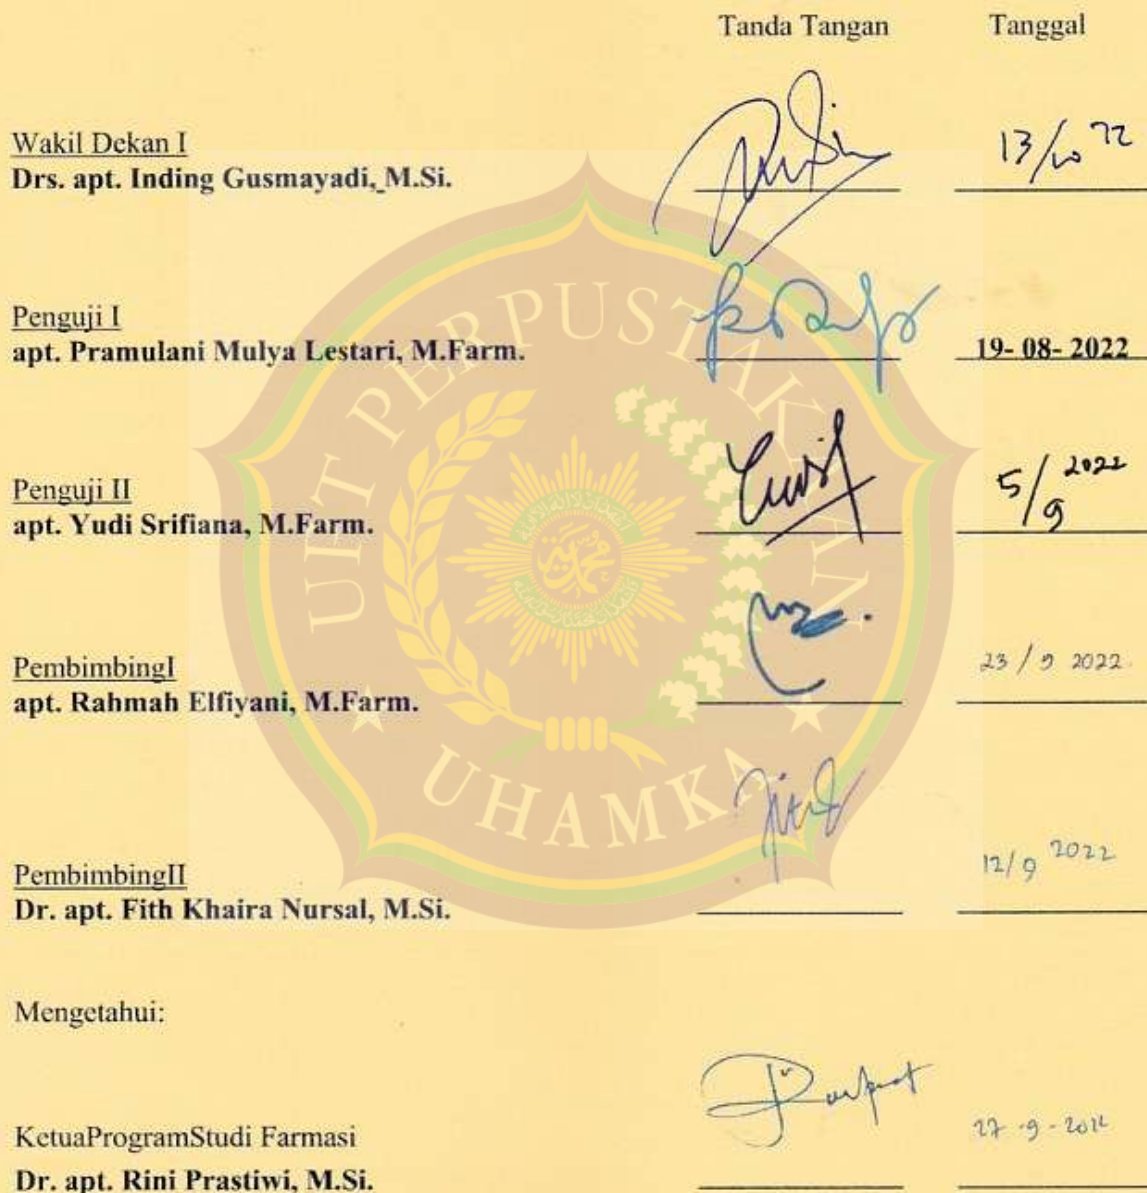 Tanda Tangan Tanggal
Wakil Dekan I
Drs. apt. Inding Gusmayadi, M.Si.
13/10 22
Penguji I
apt. Pramulani Mulya Lestari, M.Farm.
19- 08- 2022
Penguji II
apt. Yudi Srifiana, M.Farm.
5/9 2022
PembimbingI
apt. Rahmah Elfiyani, M.Farm.
23/9 2022
PembimbingII
Dr. apt. Fith Khaira Nursal, M.Si.
12/9 2022
Mengetahui:
KetuaProgramStudi Farmasi
Dr. apt. Rini Prastiwi, M.Si.
27-9-2022
UPT PERPUSTAKAAN
UHAMKA